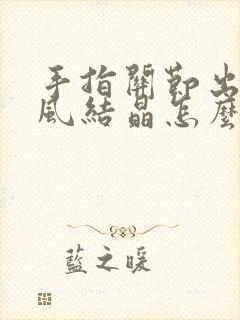 手指關節出
風結晶怎麼
藍之暖